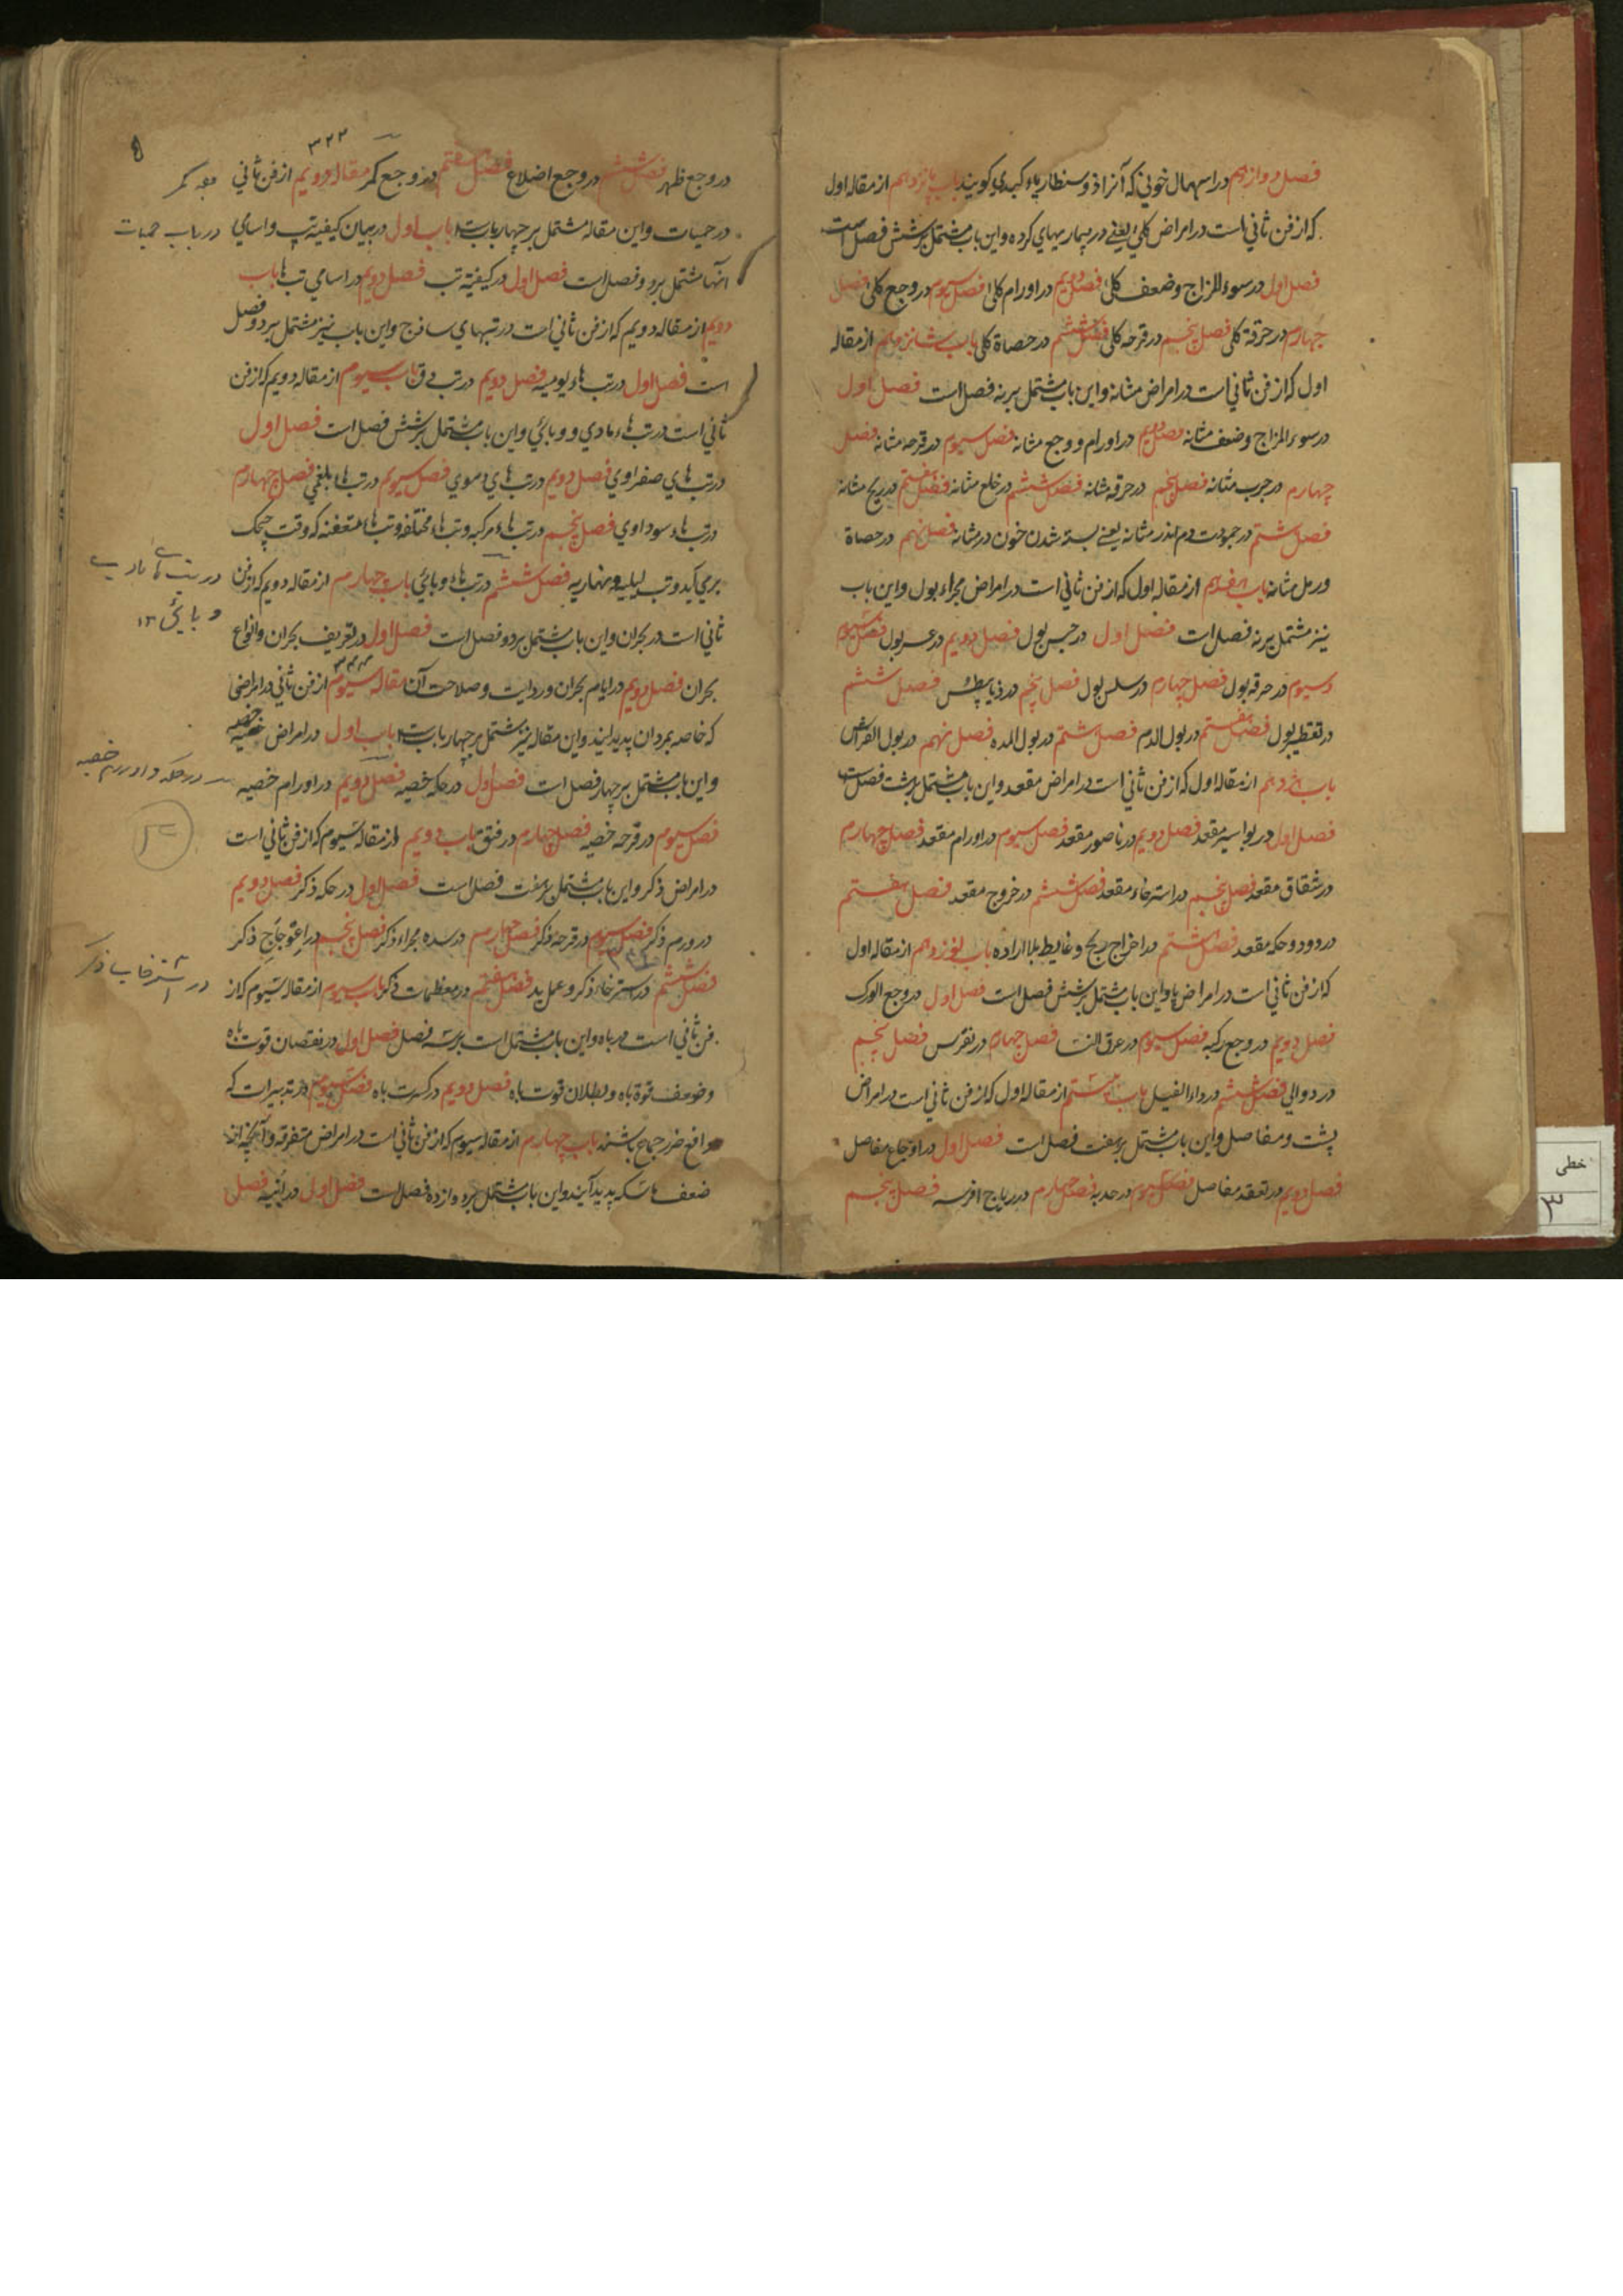 فصل دوازدهم در اسهال خونی که آنرا ذوسنطاریاء کبدی کویند باب پانزدهم از مقاله اول
که از فن ثانی است در امراض کلی یعنی در بیماریهای کرده و این باب مشتمل بر شش فصل است
فصل اول در سوء المزاج وضعف کلی فصل دویم در اورام کلی فصل سیوم در وجع کلی فصل
چهارم در حرقة کلی فصل پنجم در قرحه کلی فصل ششم در حصاة کلی باب شانزدهم از مقاله
اول که از فن ثانی است در امراض مثانه و این باب مشتمل بر نه فصل است فصل اول
در سوء المزاج وضعف مثانه فصل دویم در اورام و وجع مثانه فصل سیوم در قرحه مثانه فصل
چهارم در جرب مثانه فصل پنجم در حرقه مثانه فصل ششم در خلع مثانه فصل هفتم در ریح مثانه
فصل هشتم در جمودت دم اندر مثانه یعنی بسته شدن خون در مثانه فصل نهم در حصاة
ورمل مثانه باب هفدهم از مقاله اول که از فن ثانی است در امراض مجراء بول و این باب
نیز مشتمل بر نه فصل است فصل اول در حبس بول فصل دویم در عسر بول فصل سیوم
در حرقه بول فصل چهارم در سلس بول فصل پنجم در ذیابیطس فصل ششم
در تقطیر بول فصل هفتم در بول الدم فصل هشتم در بول المده فصل نهم در بول الفراش
باب هژدهم از مقاله اول که از فن ثانی است در امراض مقعد و این باب مشتمل بر هشت فصل است
فصل اول در بواسیر مقعد فصل دویم در ناصور مقعد فصل سیوم در اورام مقعد فصل چهارم
در شقاق مقعد فصل پنجم در استرخاء مقعد فصل ششم در خروج مقعد فصل هفتم
در دود و حکه مقعد فصل هشتم در اخراج ریح و غایط بلا اراده باب نوزدهم از مقاله اول
که از فن ثانی است در امراض پا و این باب مشتمل بر شش فصل است فصل اول در وجع الورک
فصل دویم در وجع رکبه فصل سیوم در عرق النسا فصل چهارم در نقرس فصل پنجم
در دوالی فصل ششم در داء الفیل باب بیستم از مقاله اول که از فن ثانی است در امراض
پشت و مفاصل و این باب مشتمل بر هفت فصل است فصل اول در اوجاع مفاصل
فصل دویم در تعقد مفاصل فصل سیوم در حدبه فصل چهارم در ریاح افرسه فصل پنجم
۳۲۲
در وجع ظهر فصل ششم در وجع اضلاع فصل هفتم در وجع کمر مقاله دویم از فن ثانی
در حمیات و این مقاله مشتمل بر چهار باب است باب اول در بیان کیفیة تپ و اسامی
در باب حمیات
آنها مشتمل بر دو فصل است فصل اول در کیفیة تب فصل دویم در اسامی تب ها باب
دویم از مقاله دویم که از فن ثانی است در تبهای ساذج و این باب نیز مشتمل بر دو فصل
است فصل اول در تب هاء یومیه فصل دویم در تب دق باب سیوم از مقاله دویم که از فن
ثانی است در تب هاء مادی و وبائی و این باب مشتمل بر شش فصل است فصل اول
در تب های صفراوی فصل دویم در تب های دموی فصل سیوم در تب هاء بلغمی فصل چهارم
در تب هاء سوداوی فصل پنجم در تب هاء مرکبه و تب هاء مختلفه و تب هاء متعفنه که وقت چیچک
برمی آید و تب لیلیه و نهاریه فصل ششم در تب هاء وبائی باب چهارم از مقاله دویم که از فن
وبائی ۱۳
ثانی است در بحران و این باب مشتمل بر دو فصل است فصل اول در تعریف بحران و انواع
بحران فصل دویم در ایام بحران و ردایت و صلاحت آن مقاله سیوم از فن ثانی در امراضی
که خاصه بمردان پدید آیند و این مقاله نیز مشتمل بر چهار باب است باب اول در امراض خصیه
و این باب مشتمل بر چهار فصل است فصل اول در حکه خصیه فصل دویم در اورام خصیه
در حکه و اورم خصیه
فصل سیوم در قرحه خصیه فصل چهارم در فتق باب دویم از مقاله سیوم که از فن ثانی است
در امراض ذکر و این باب مشتمل بر هفت فصل است فصل اول در حکه ذکر فصل دویم
در ورم ذکر فصل سیوم در قرحه ذکر فصل چهارم در سده مجراء ذکر فصل پنجم در اعوجاج ذکر
فصل ششم در استرخاء ذکر و عمل ید فصل هفتم در معظمات ذکر باب سیوم از مقاله سیوم که از
فن ثانی است در باه و این باب مشتمل است بر سه فصل فصل اول در نقصان قوت باه
وضعف قوة باه و بطلان قوت باه فصل دویم در کسرت باه فصل سیوم در تدبیرات که
دافع ضرر جماع باشند باب چهارم از مقاله سیوم که از فن ثانی است در امراض متفرقه و آنچه از
ضعف باسکه پدید آیند و این باب مشتمل بر دوازده فصل است فصل اول در ابنه فصل
خطی
۳